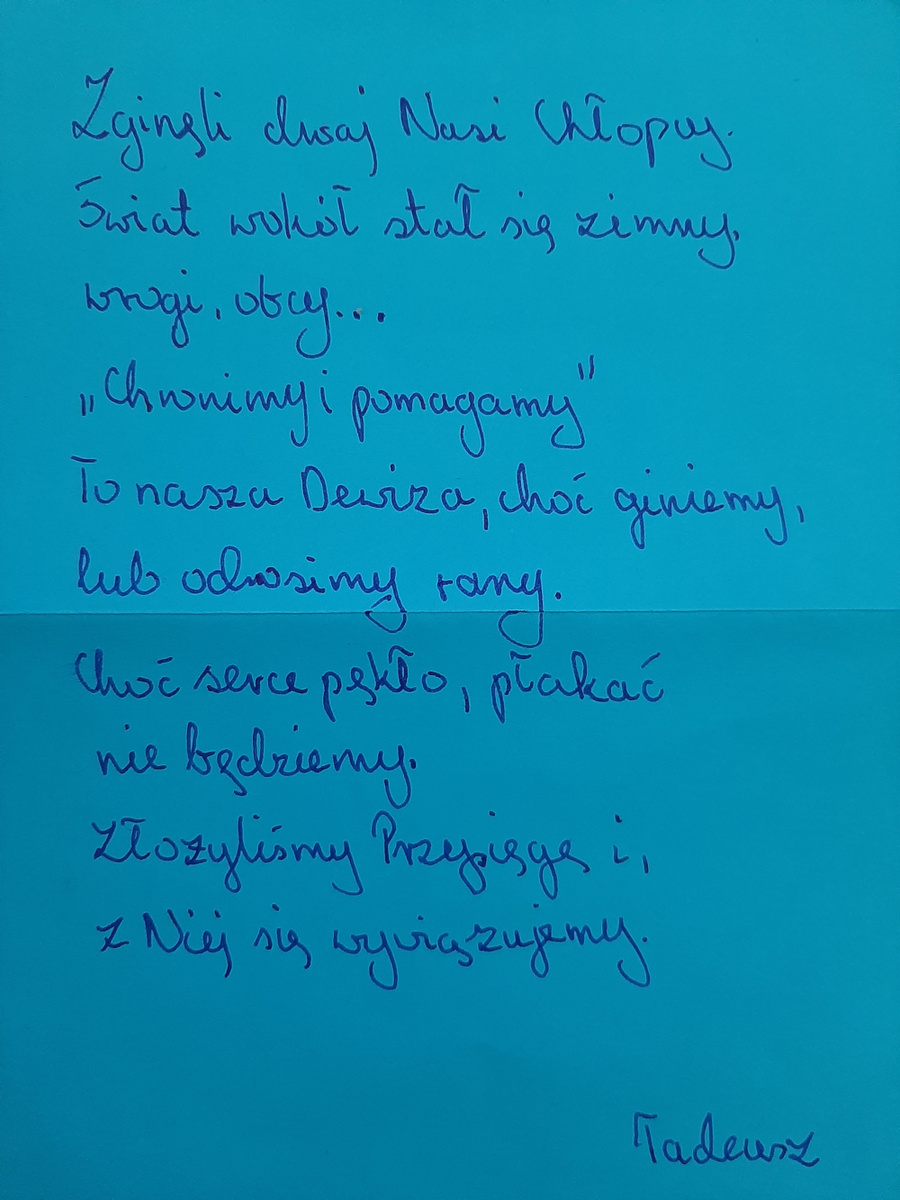 Zginęli dwaj Nasi Chłopcy.
Świat wokół stał się zimny,
wrogi, obcy...
„Chronimy i pomagamy”
To nasza Dewiza, choć giniemy,
lub odnosimy rany.
Choć serce pękło, płakać
nie będziemy.
Złożyliśmy Przysięgę i,
z Niej się wywiązujemy.
Tadeusz